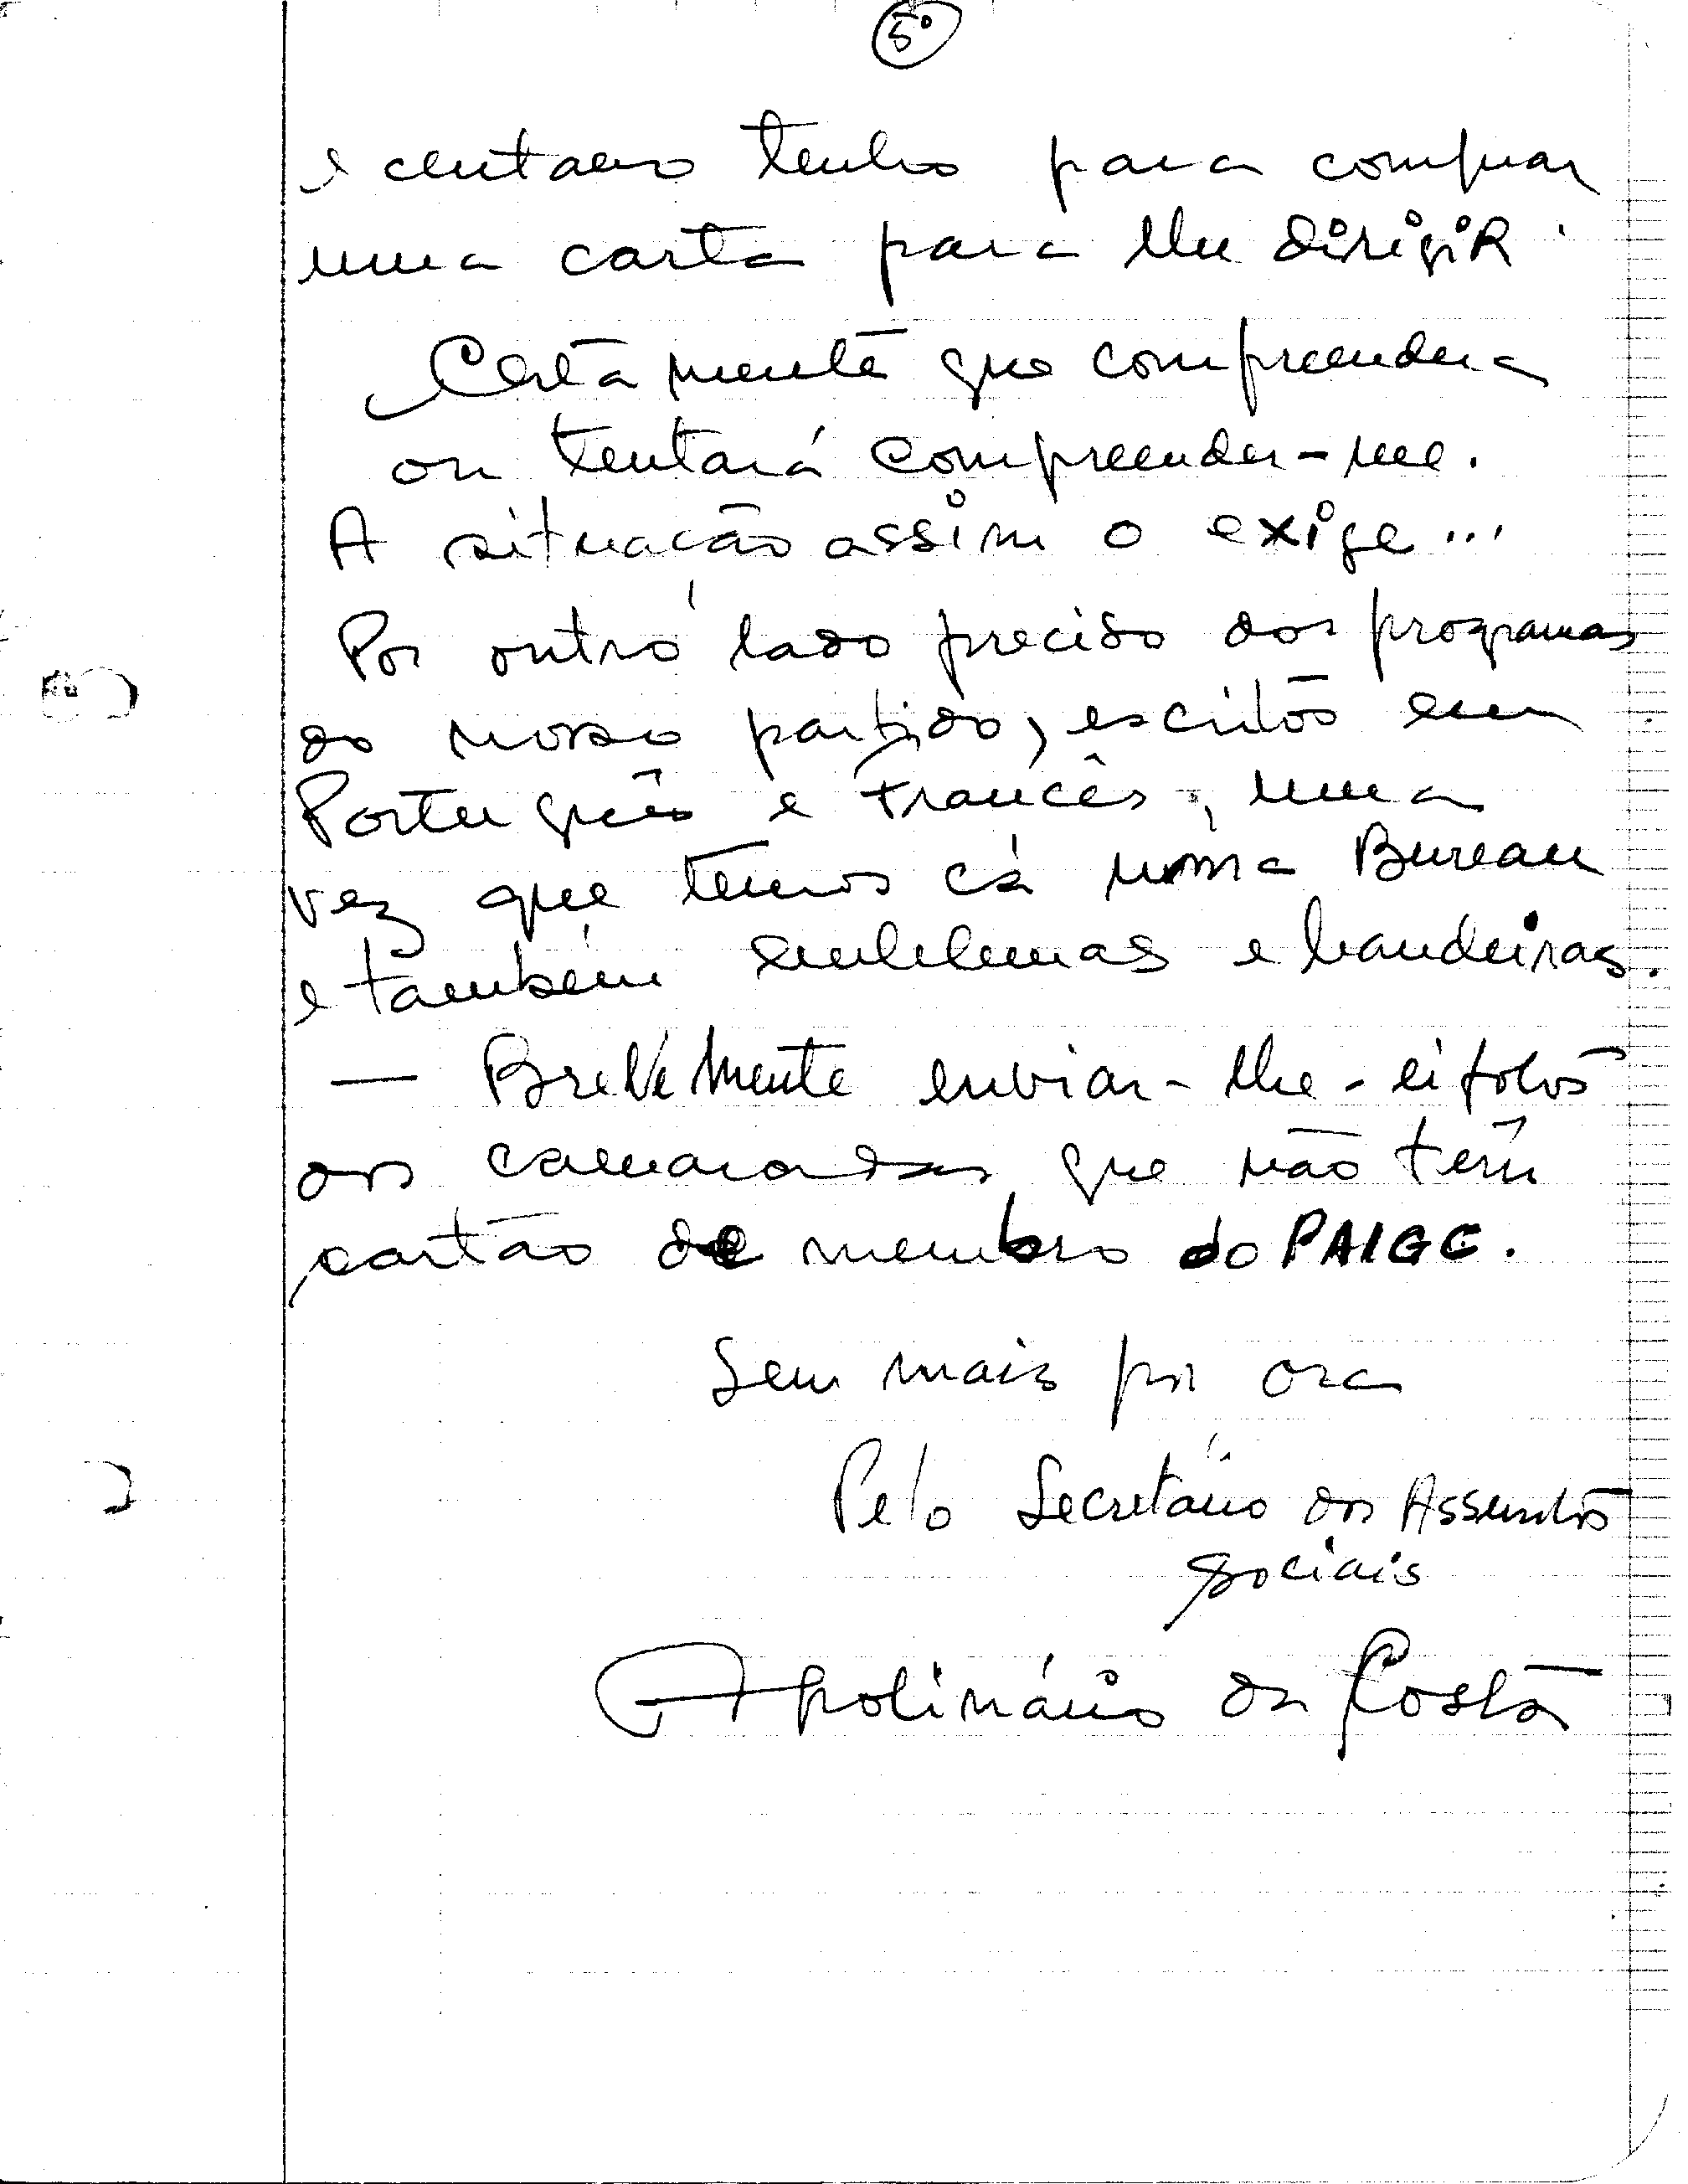 5º
e centavo tenho para comprar
uma carta para lhe dirigir.
Certamente que compreenderá
ou tentará compreender-me.
A situação assim o exige...
Por outro lado preciso dos programas
do nosso partido, escritos em
Português e Francês, uma
vez que temos cá numa Bureau
e também emblemas e bandeiras.
— Brevemente enviar-lhe-ei fotos
dos camaradas que não têm
cartão de membro do PAIGC.
Sem mais por ora
Pelo Secretário dos Assuntos
Sociais
Apolinário da Costa